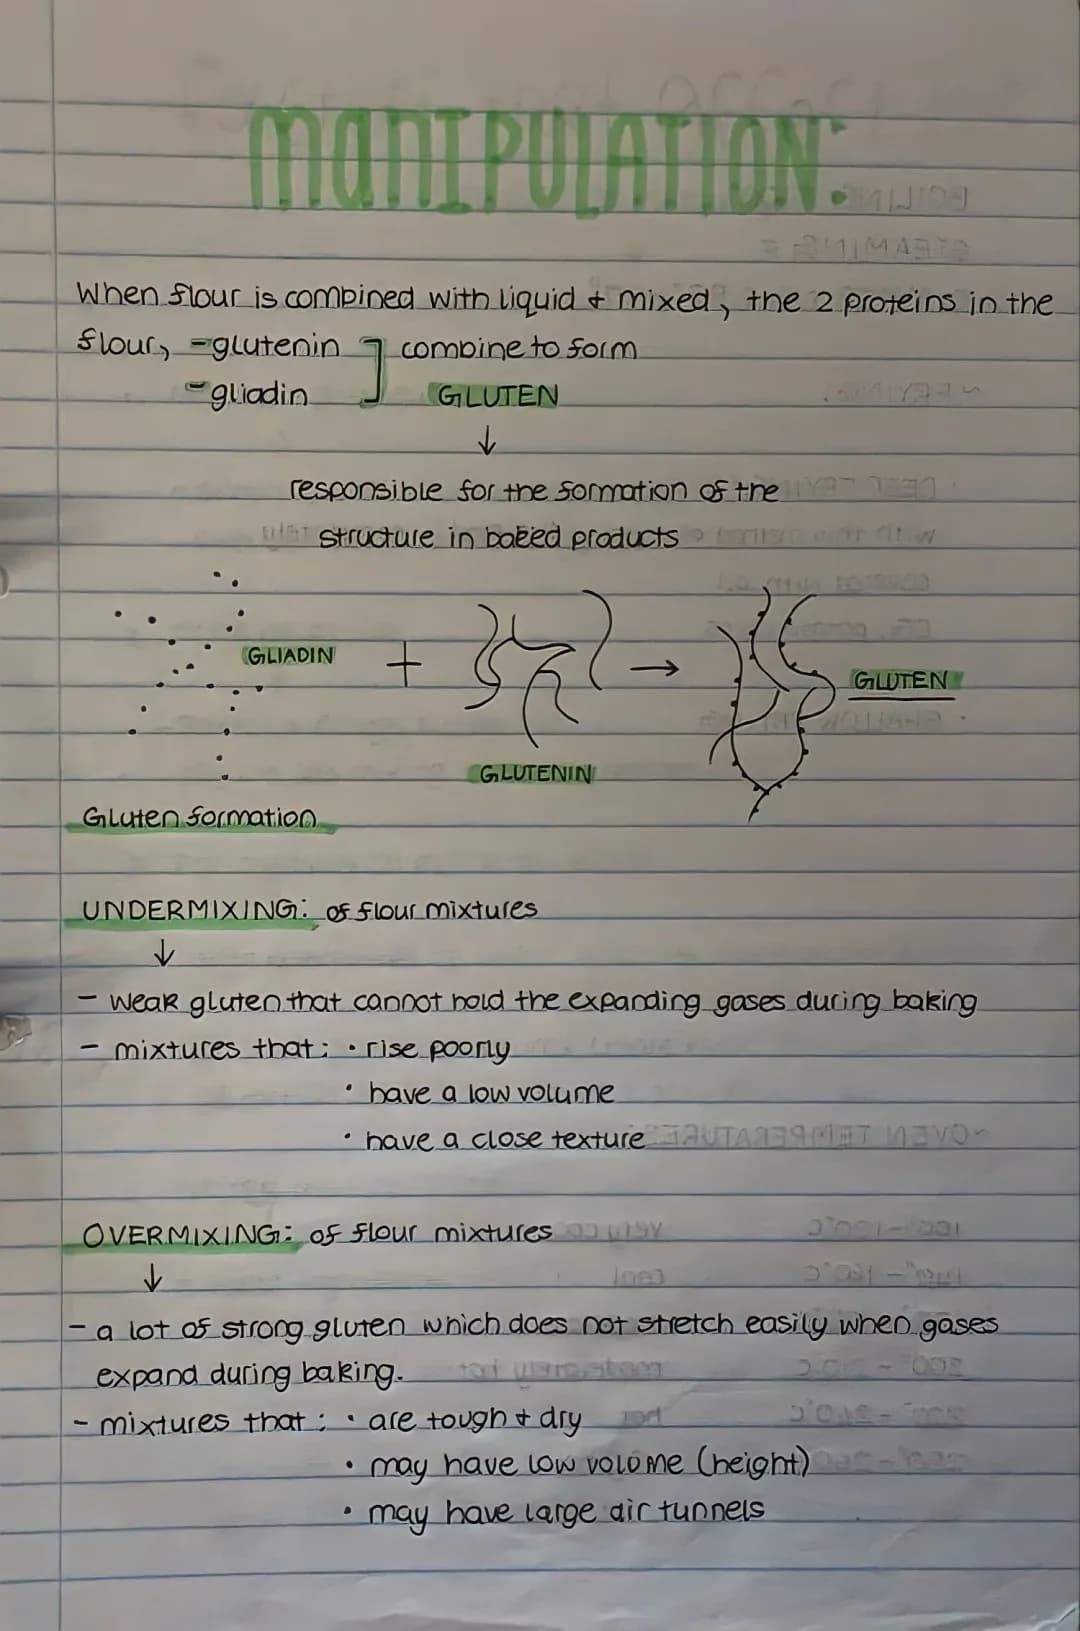 manIPULATION:
When flour is combined with liquid + mixed, the 2 proteins in the
flour, -glutenin ] combine to form
-gliadin GLUTEN
↓
responsible for the formation of the
structure in baked products
GLIADIN + → GLUTEN
GLUTENIN
Gluten formation
UNDERMIXING: of flour mixtures
↓
- weak gluten that cannot hold the expanding gases during baking
- mixtures that: • rise poorly
• have a low volume
• have a close texture
OVERMIXING: of flour mixtures
↓
- a lot of strong gluten which does not stretch easily when gases
expand during baking.
- mixtures that: • are tough + dry
• may have low volume (height)
• may have large air tunnels